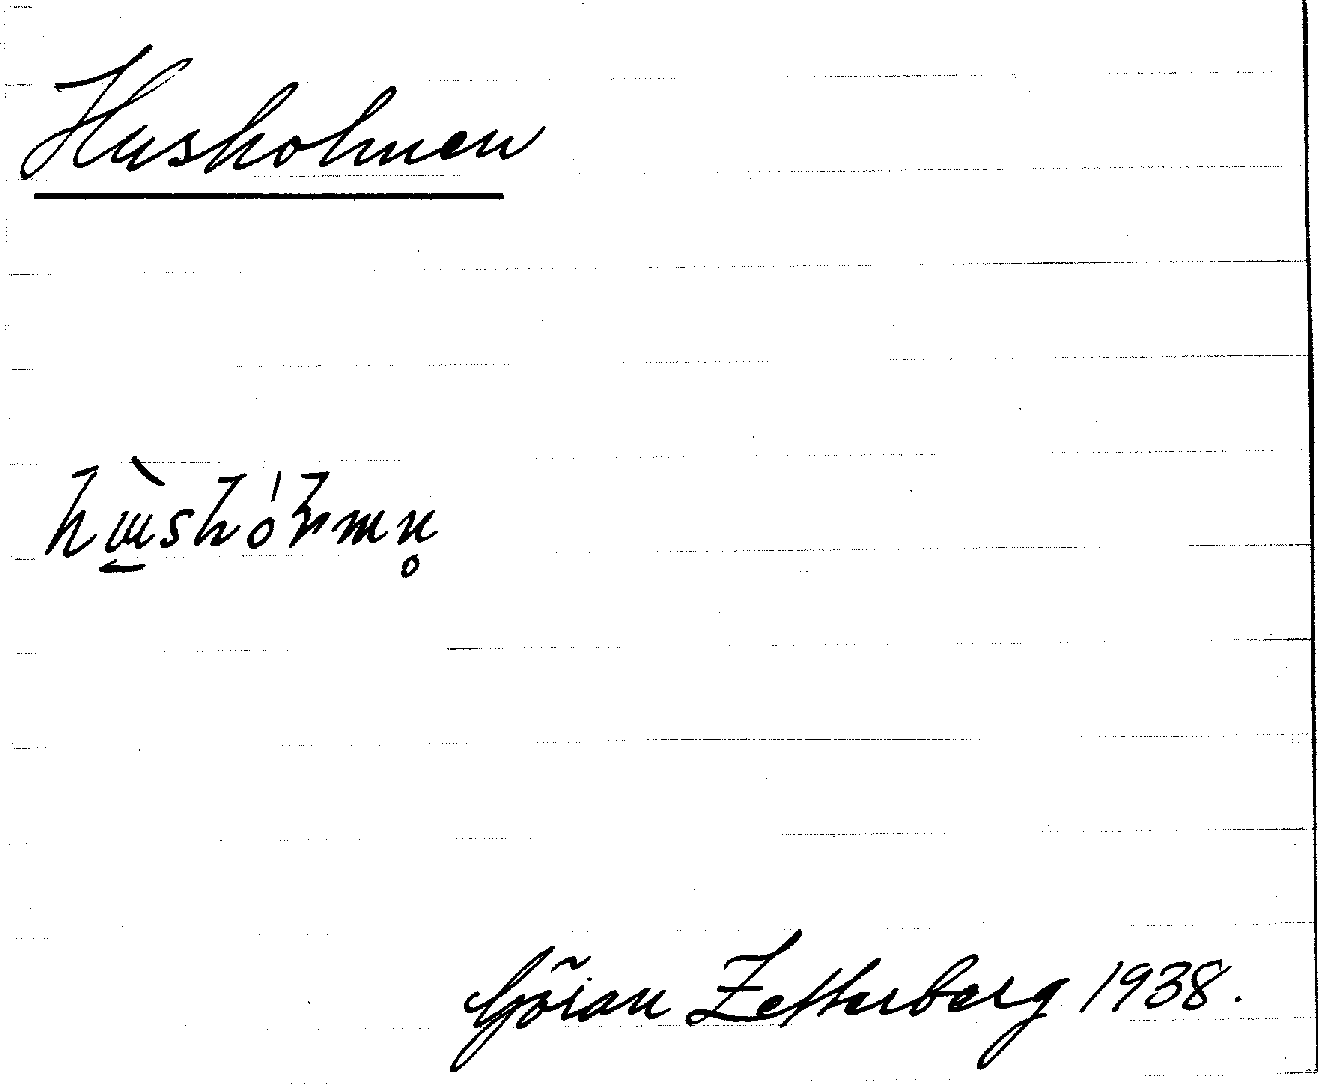 Husholmen
Göran Zetterberg 1938.